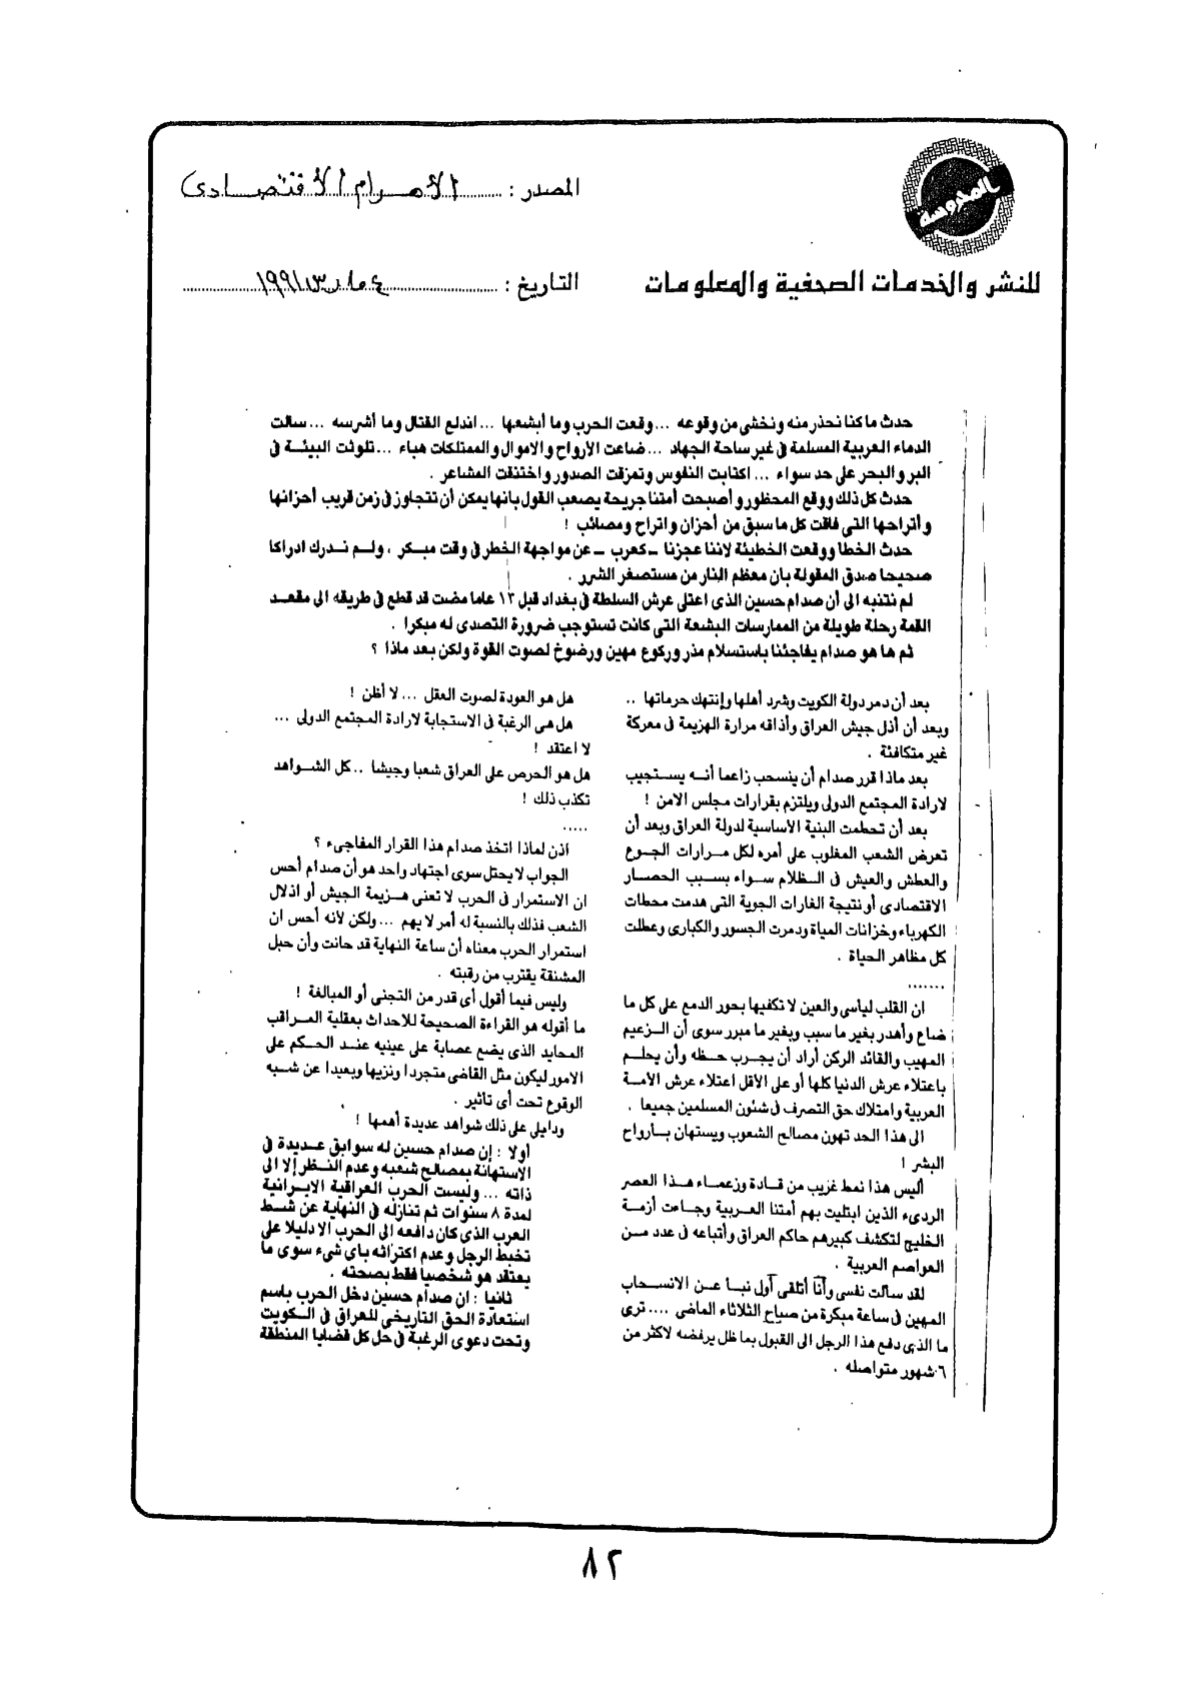 المحروسة
للنشر والخدمات الصحفية والمعلومات
المصدر : الأهرام الاقتصادى
التاريخ : ٤ مارس ١٩٩١
حدث ما كنا نحذر منه ونخشى من وقوعه ... وقعت الحرب وما أبشعها ... اندلع القتال وما أشرسه ... سالت
الدماء العربية المسلمة فى غير ساحة الجهاد ... ضاعت الأرواح والاموال والممتلكات هباء ... تلوثت البيئة فى
البر والبحر على حد سواء ... اكتابت النفوس وتمزقت الصدور واختنقت المشاعر .
حدث كل ذلك ووقع المحظور وأصبحت أمتنا جريحة يصعب القول بانها يمكن أن تتجاوز فى زمن قريب أحزانها
وأتراحها التى فاقت كل ما سبق من أحزان واتراح ومصائب !
حدث الخطا ووقعت الخطيئة لاننا عجزنا - كعرب - عن مواجهة الخطر فى وقت مبكر ، ولم ندرك ادراكا
صحيحا صدق المقولة بان معظم النار من مستصغر الشرر .
لم نتنبه الى أن صدام حسين الذى اعتلى عرش السلطة فى بغداد قبل ١٢ عاما مضت قد قطع فى طريقه الى مقعد
القمة رحلة طويلة من الممارسات البشعة التى كانت تستوجب ضرورة التصدى له مبكرا .
ثم ها هو صدام يفاجئنا باستسلام مذر وركوع مهين ورضوخ لصوت القوة ولكن بعد ماذا ؟
بعد أن دمر دولة الكويت وشرد أهلها وإنتهك حرماتها ..
وبعد أن أذل جيش العراق وأذاقه مرارة الهزيمة فى معركة
غير متكافئة .
بعد ماذا قرر صدام أن ينسحب زاعما أنه يستجيب
لارادة المجتمع الدولى ويلتزم بقرارات مجلس الامن !
بعد أن تحطمت البنية الأساسية لدولة العراق وبعد أن
تعرض الشعب المغلوب على أمره لكل مرارات الجوع
والعطش والعيش فى الظلام سواء بسبب الحصار
الاقتصادى أو نتيجة الغارات الجوية التى هدمت محطات
الكهرباء وخزانات المياة ودمرت الجسور والكبارى وعطلت
كل مظاهر الحياة .
.......
ان القلب ليأسى والعين لا تكفيها بحور الدمع على كل ما
ضاع وأهدر بغير ما سبب وبغير ما مبرر سوى أن الزعيم
المهيب والقائد الركن أراد أن يجرب حظه وأن يحلم
باعتلاء عرش الدنيا كلها أو على الاقل اعتلاء عرش الأمة
العربية وامتلاك حق التصرف فى شئون المسلمين جميعا .
الى هذا الحد تهون مصالح الشعوب ويستهان بأرواح
البشر !
أليس هذا نمط غريب من قادة وزعماء هذا العصر
الردىء الذين ابتليت بهم أمتنا العربية وجاءت أزمة
الخليج لتكشف كبيرهم حاكم العراق وأتباعه فى عدد من
العواصم العربية .
لقد سالت نفسى وأنا أتلقى أول نبا عن الانسحاب
المهين فى ساعة مبكرة من صباح الثلاثاء الماضى .... ترى
ما الذى دفع هذا الرجل الى القبول بما ظل يرفضه لاكثر من
٦ شهور متواصله .
هل هو العودة لصوت العقل ... لا أظن !
هل هى الرغبة فى الاستجابة لارادة المجتمع الدولى ...
لا اعتقد !
هل هو الحرص على العراق شعبا وجيشا .. كل الشواهد
تكذب ذلك !
.....
اذن لماذا اتخذ صدام هذا القرار المفاجىء ؟
الجواب لا يحتل سوى اجتهاد واحد هو أن صدام أحس
ان الاستمرار فى الحرب لا تعنى هزيمة الجيش أو اذلال
الشعب فذلك بالنسبة له أمر لا يهم ... ولكن لأنه أحس ان
استمرار الحرب معناه أن ساعة النهاية قد حانت وأن حبل
المشنقة يقترب من رقبته .
وليس فيما أقول أى قدر من التجنى أو المبالغة !
ما أقوله هو القراءة الصحيحة للاحداث بعقلية المراقب
المحايد الذى يضع عصابة على عينيه عند الحكم على
الامور ليكون مثل القاضى متجردا ونزيها وبعيدا عن شبه
الوقوع تحت أى تاثير .
ودليلى على ذلك شواهد عديدة أهمها !
أولا : إن صدام حسين له سوابق عديدة فى
الإستهانة بمصالح شعبه وعدم النظر إلا الى
ذاته ... وليست الحرب العراقية الايرانية
لمدة ٨ سنوات ثم تنازله فى النهاية عن شط
العرب الذى كان دافعه الى الحرب الا دليلا على
تخبط الرجل وعدم اكتراثه باى شىء سوى ما
يعتقد هو شخصيا فقط بصحته .
ثانيا : ان صدام حسين دخل الحرب باسم
استعادة الحق التاريخى للعراق فى الكويت
وتحت دعوى الرغبة فى حل كل قضايا المنطقة
٨٢